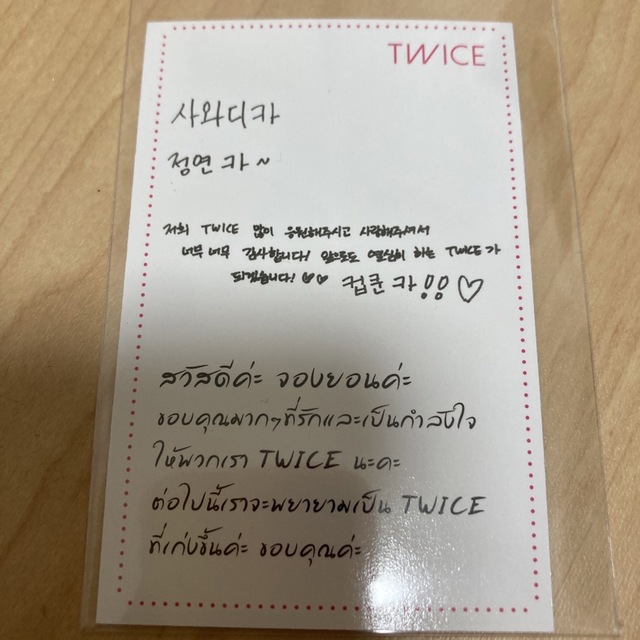 TWICE
사와디카
정연 카~
저희 TWICE 많이 응원해주시고 사랑해주셔서
너무너무 감사합니다! 앞으로도 열심히 하는 TWICE가
되겠습니다! ♡♡ 컵쿤 카!! ♡
สวัสดีค่ะ จองยอนค่ะ
ขอบคุณมากๆที่รักและเป็นกำลังใจ
ให้พวกเรา TWICE นะคะ
ต่อไปนี้เราจะพยายามเป็น TWICE
ที่เก่งขึ้นค่ะ ขอบคุณค่ะ